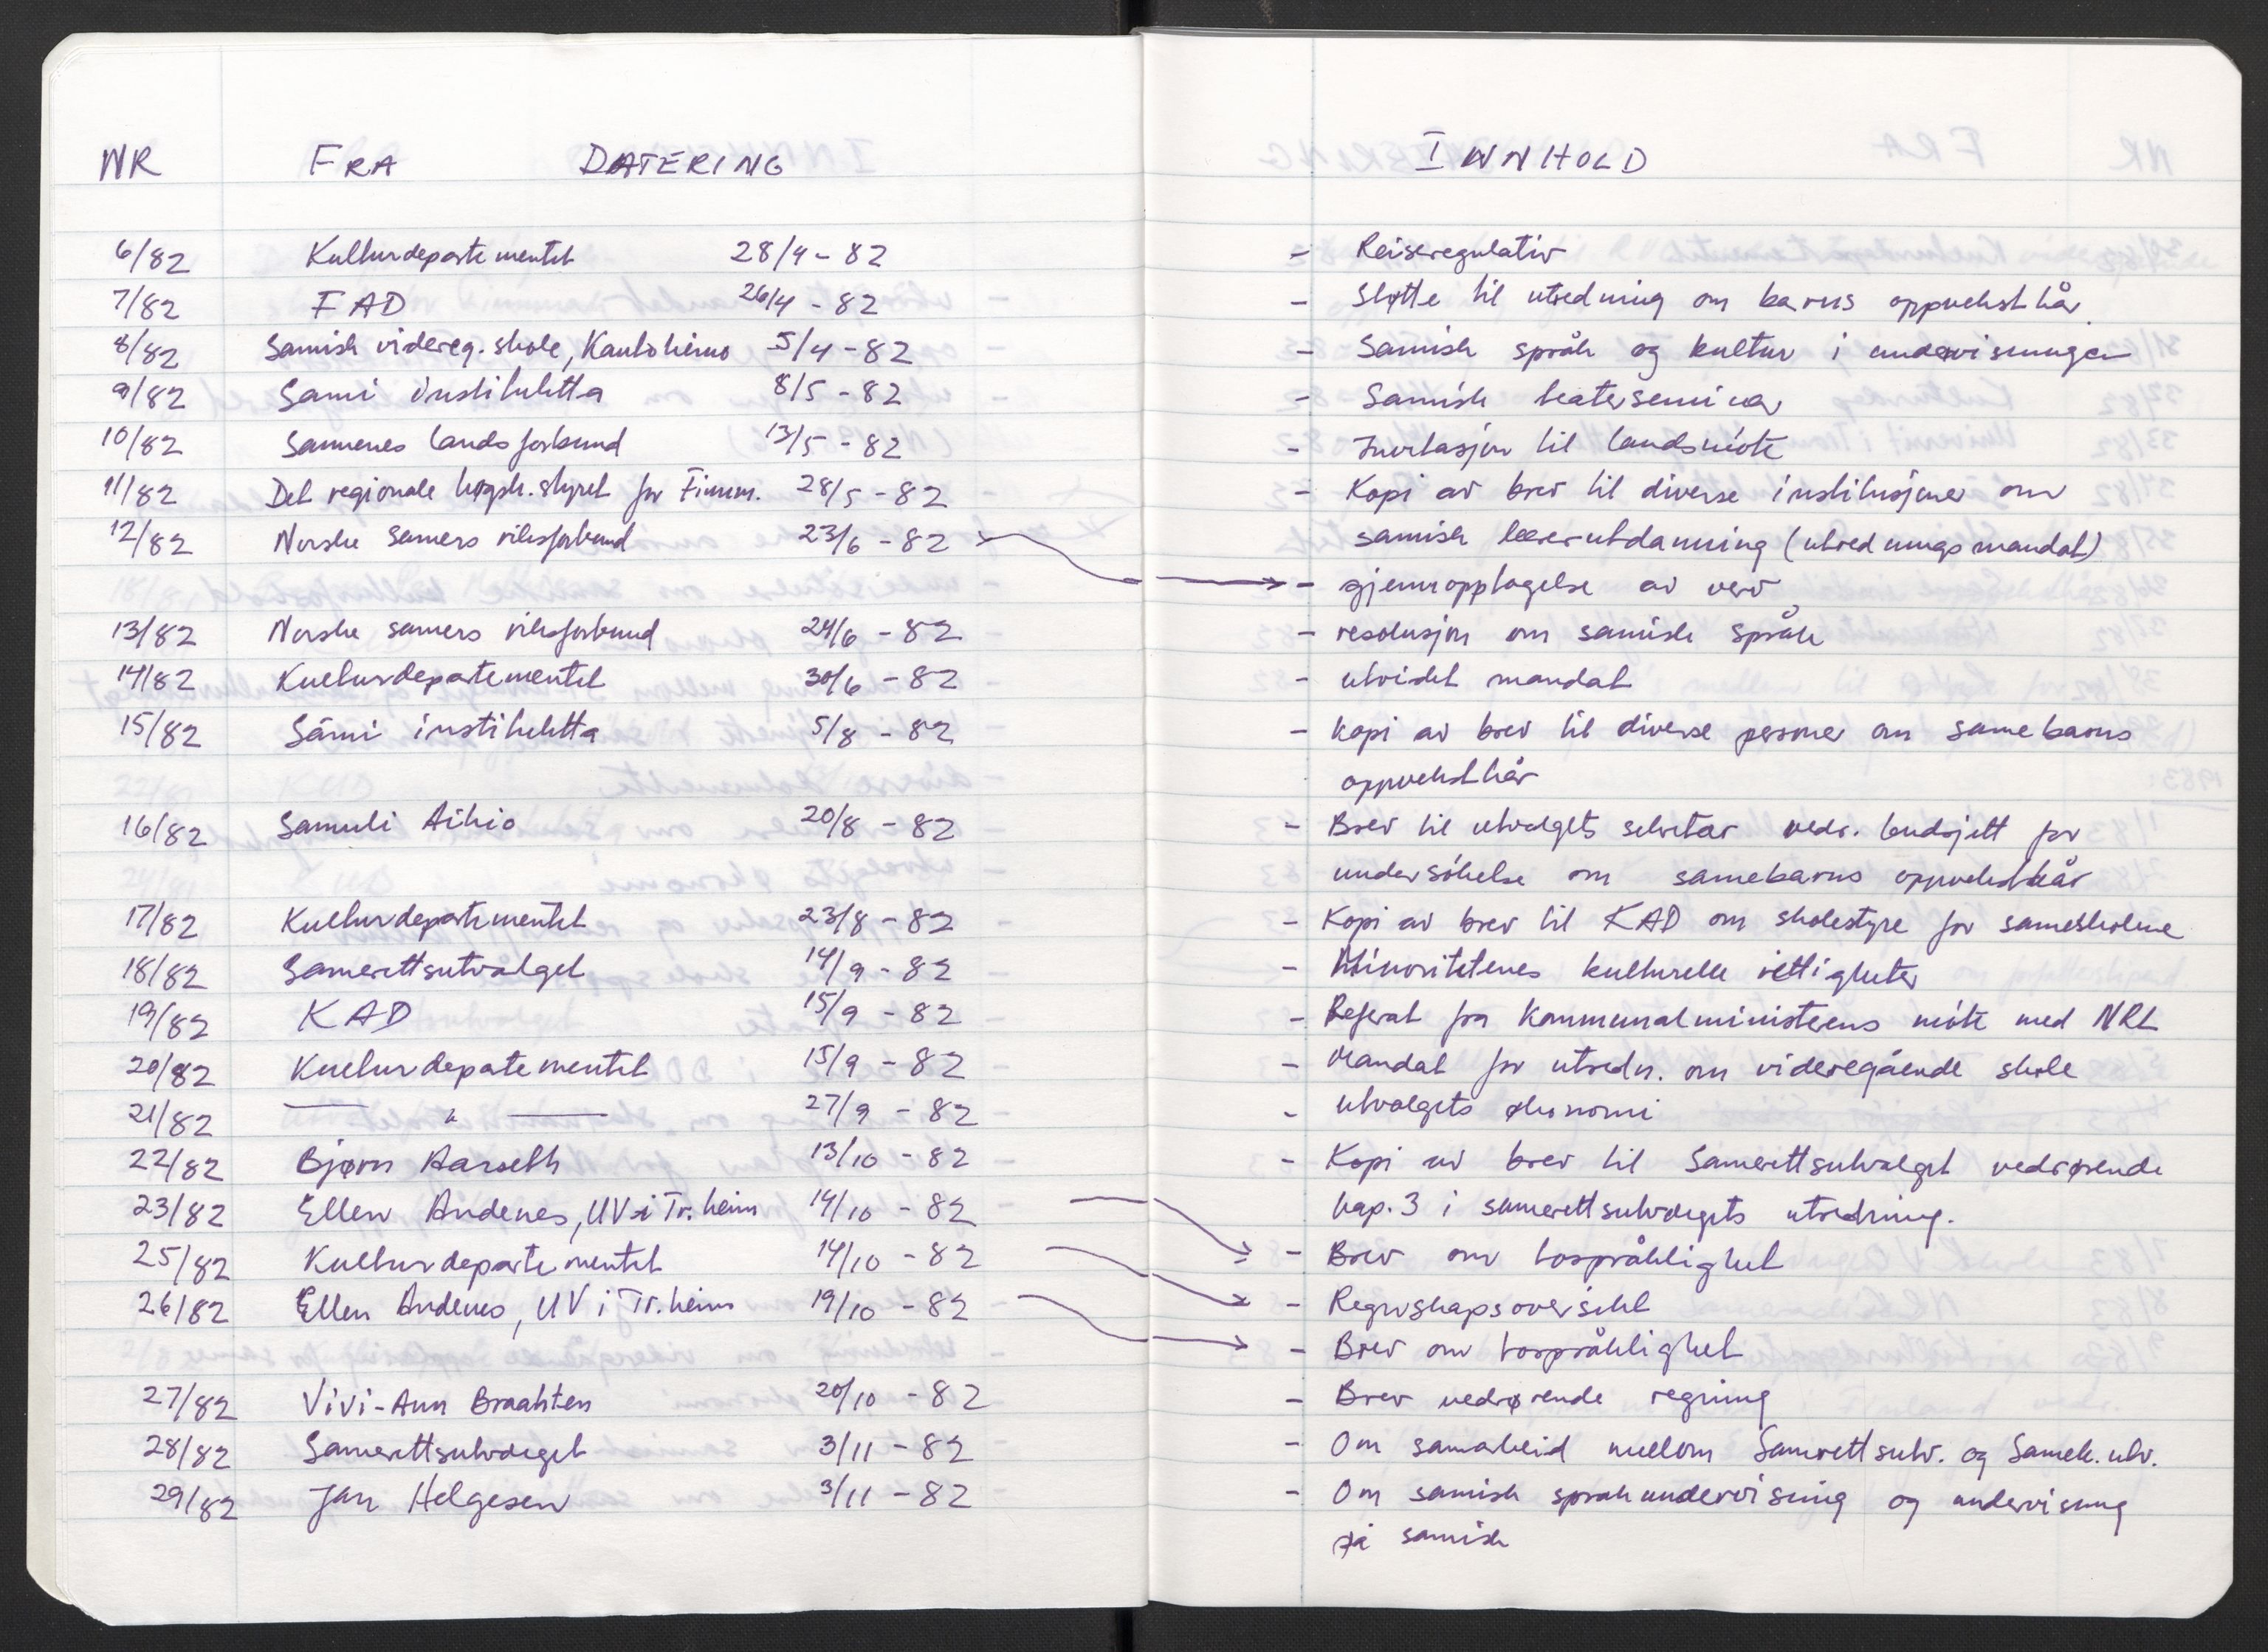 NR FRA DATERING INNHOLD
6/82 Kulturdepartementet 28/4 - 82 - Reiseregulativ
7/82 FAD 26/4 - 82 - Støtte til utredning om barns oppvekstkår
8/82 Samisk videreg. skole, Kautokeino 5/4 - 82 - Samisk språk og kultur i undervisningen
9/82 Sami instituhtta 8/5 - 82 - Samisk teaterseminar
10/82 Samenes landsforbund 13/5 - 82 - Invitasjon til landsmöte
11/82 Det regionale høgsk. styret for Finnm. 28/5 - 82 - Kopi av brev til diverse institusjoner om
samisk lærerutdanning (utredningsmandat)
12/82 Norske samers riksforbund 23/6 - 82 - gjenopptagelse av verv
13/82 Norske samers riksforbund 24/6 - 82 - resolusjon om samisk språk
14/82 Kulturdepartementet 30/6 - 82 - utvidet mandat
15/82 Sámi instituhtta 5/8 - 82 - kopi av brev til diverse personer om samebarns
oppvekstkår
16/82 Samuli Aikio 20/8 - 82 - Brev til utvalgets sekretær vedr. budsjett for
undersökelse om samebarns oppvekstkår
17/82 Kulturdepartementet 23/8 - 82 - Kopi av brev til KAD om skolestyre for sameskolene
18/82 Samerettsutvalget 14/9 - 82 - Minoritetenes kulturelle rettigheter
19/82 KAD 15/9 - 82 - Referat fra kommunalministerens möte med NRL
20/82 Kulturdepartementet 15/9 - 82 - Mandat for utredn. om videregående skole
21/82 — " — 27/9 - 82 - utvalgets økonomi
22/82 Bjørn Aarseth 13/10 - 82 - Kopi av brev til Samerettsutvalget vedrørende
kap. 3 i samerettsutvalgets utredning.
23/82 Ellen Andenes, UV i Tr.heim 14/10 - 82 - Brev om tospråklighet
25/82 Kulturdepartementet 14/10 - 82 - Regnskapsoversikt
26/82 Ellen Andenes, UV i Tr.heim 19/10 - 82 - Brev om tospråklighet
27/82 Vivi-Ann Braahten 20/10 - 82 - Brev vedrørende regning
28/82 Samerettsutvalget 3/11 - 82 - Om samarbeid mellom Samerettsutv. og Samek. utv.
29/82 Jan Helgesen 3/11 - 82 - Om samisk språkundervisning og undervisning
på samisk